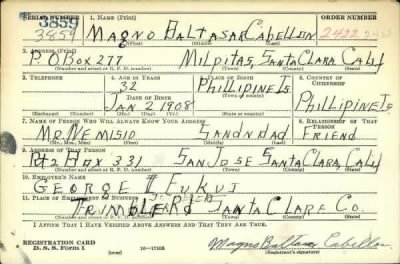 SERIAL NUMBER 1. NAME (Print) ORDER NUMBER
3859
3859 MAGNO BALTASAR CABELLON 2422
(First) (Middle) (Last)
2. ADDRESS (Print)
P.O BOX 277 MILPITAS, SANTA CLARA CALIF
(Number and street or R. F. D. number) (Town) (County) (State)
3. TELEPHONE 4. AGE IN YEARS 5. PLACE OF BIRTH 6. COUNTRY OF CITIZENSHIP
32 PHILLIPINE IS
DATE OF BIRTH (Town or county)
JAN 2 1908 PHILLIPINE IS
(Exchange) (Number) (Mo.) (Day) (Yr.) (State or country)
7. NAME OF PERSON WHO WILL ALWAYS KNOW YOUR ADDRESS 8. RELATIONSHIP OF THAT PERSON
MR. NEMISIO FRIEND
(Mr., Mrs., Miss) (First) (Middle) (Last)
9. ADDRESS OF THAT PERSON
Rt 2 Box 331 SAN JOSE SANTA CLARA, CALIF
(Number and street or R. F. D. number) (Town) (County) (State)
10. EMPLOYER'S NAME
GEORGE I FUKUI
11. PLACE OF EMPLOYMENT OR BUSINESS
TRIMBLE RD SANTA CLARA CO.
(Number and street or R. F. D. number) (Town) (County) (State)
I AFFIRM THAT I HAVE VERIFIED ABOVE ANSWERS AND THAT THEY ARE TRUE.
REGISTRATION CARD
D. S. S. Form 1 (over) Magno Baltasar Cabellon
(Registrant's signature)